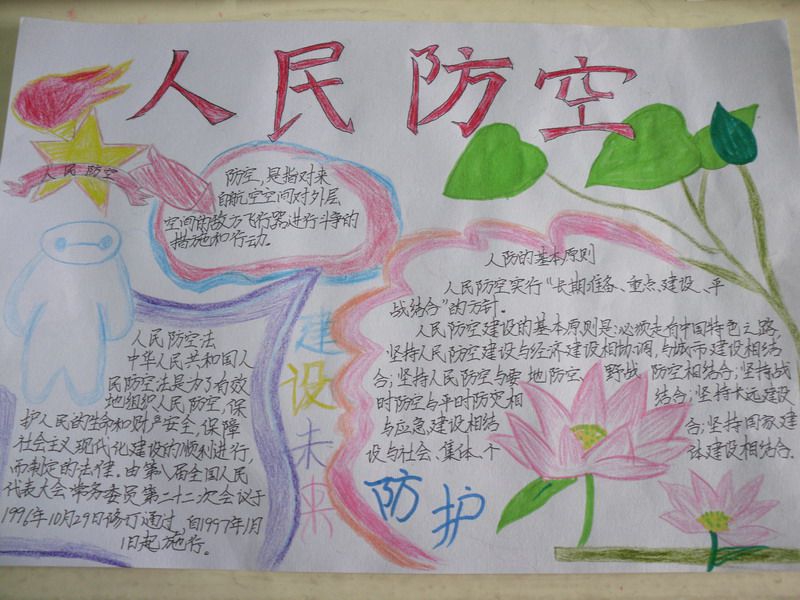 人民防空
人民防空
防空，是指对来
自航空空间对外层
空间的敌方飞行器进行斗争的
措施和行动。
人防的基本原则
人民防空实行“长期准备、重点建设、平
战结合”的方针。
人民防空建设的基本原则是：必须走有中国特色之路，
坚持人民防空建设与经济建设相协调，与城市建设相结
合；坚持人民防空与要地防空、野战防空相结合；坚持战
时防空与平时防灾相结合；坚持长远建设
与应急建设相结合；坚持国家建
设与社会、集体、个体建设相结合。
人民防空法
中华人民共和国人
民防空法是为了有效
地组织人民防空，保
护人民的生命和财产安全，保障
社会主义现代化建设的顺利进行，
而制定的法律。由第八届全国人民
代表大会常务委员第二十二次会议于
1996年10月29日修订通过，自1997年1月
1日起施行。
建设未来
防护